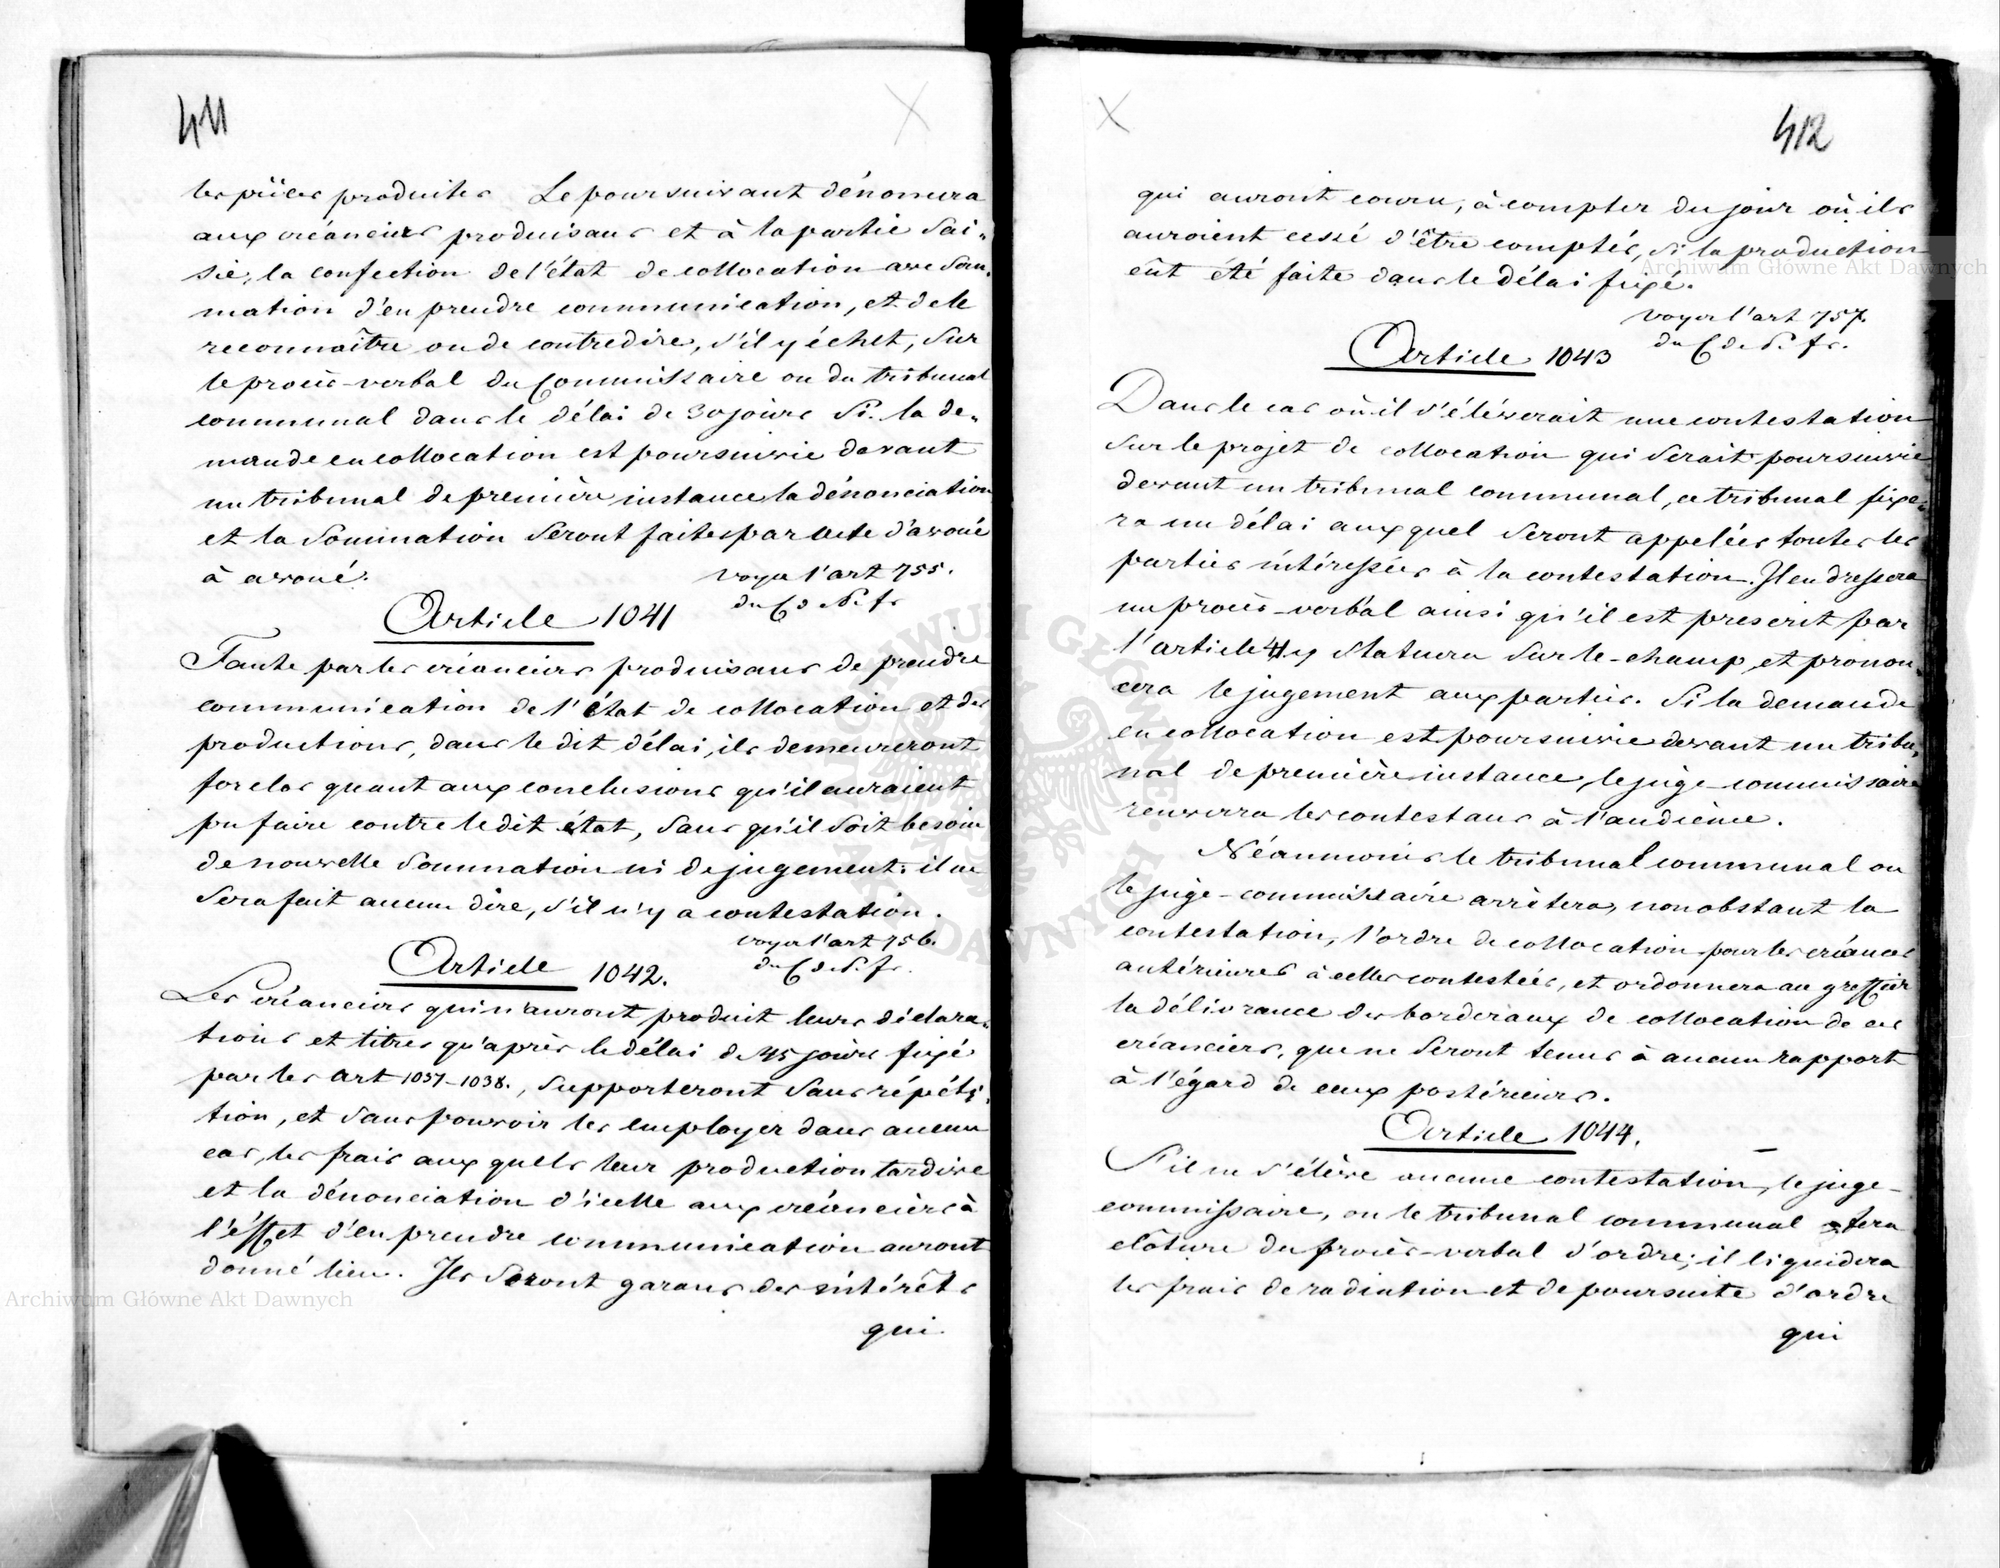 411
les pièces produites Le poursuivant dénoncera
aux créanciers produisans et à la partie sai-
sie, la confection de l'état de collocation avec som-
mation d'en prendre communication, et de le
reconnaître ou de contredire, s'il y échet, sur
le procès-verbal du Commissaire ou du tribunal
communal dans le délai de 30 jours Si la de-
mande en collocation est poursuivie devant
un tribunal de première instance la dénonciation
et la sommation seront faites par acte d'avoué
à avoué.
voyez l'art 755.
du C de P. fr
Article 1041
Faute par les créanciers produisans de prendre
communication de l'état de collocation et des
productions, dans le dit délai, ils demeureront
forclos quant aux conclusions qu'il auraient
pu faire contre le dit état, sans qu'il soit besoin
de nouvelle sommation ni de jugement: il ne
sera fait aucun dire, s'il n'y a contestation.
voyez l'art 756.
du C de P. fr.
Article 1042.
Les créanciers qui n'auront produit leurs déclara-
tions et titres qu'après le délai de 45 jours fixé
par les art 1037-1038., supporteront sans répéti-
tion, et sans pouvoir les employer dans aucun
cas, les frais aux quels leur production tardive
et la dénonciation d'icelle aux créanciers à
l'éffet d'en prendre communication auront
donné lieu. Ils seront garans des intérêts
qui
412
qui auront couru, à compter du jour où ils
auroient cessé d'être comptés, si la production
eût été faite dans le délai fixé.
voyez l'art 757.
du C de P. fr.
Article 1043
Dans le cas où il s'éléverait une contestation
sur le projet de collocation qui serait poursuivie
devant un tribunal communal, ce tribunal fixe-
ra un délai aux quel seront appelées toutes les
parties intéressées à la contestation. Il en dressera
un procès-verbal ainsi qu'il est prescrit par
l'article 41 y statuera sur le-champ, et pronon-
cera le jugement aux parties. Si la demande
en collocation est poursuivie devant un tribu-
nal de première instance, le juge-commissaire
renverra les contestans à l'audience.
Néanmoins le tribunal communal ou
le juge-commissaire arrêtera, nonobstant la
contestation, l'ordre de collocation pour les créances
antérieures à celles contestées, et ordonnera au greffier
la délivrance des bordéraux de collocation de ces
créanciers, que ne seront tenus à aucun rapport
à l'égard de ceux postérieurs.
Article 1044.
S'il ne s'élève aucune contestation, le juge-
commissaire, ou le tribunal communal fera
clôture du procès-verbal d'ordre; il liquidera
les frais de radiation et de poursuite d'ordre
qui
Archiwum Główne Akt Dawnych
Archiwum Główne Akt Dawnych
ARCHIWUM GŁÓWNE AKT DAWNYCH